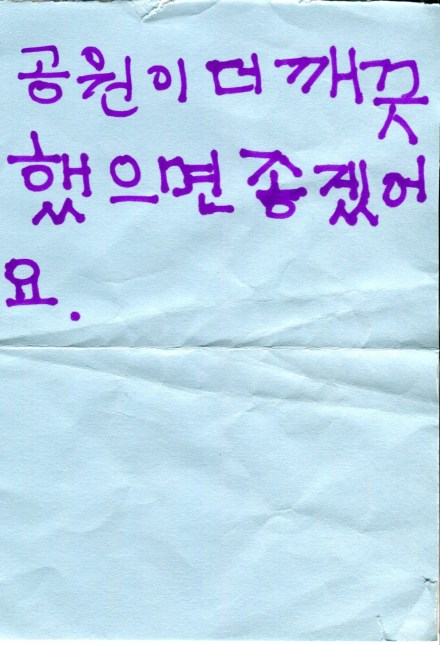 공원이 더 깨끗
했으면 좋겠어
요.